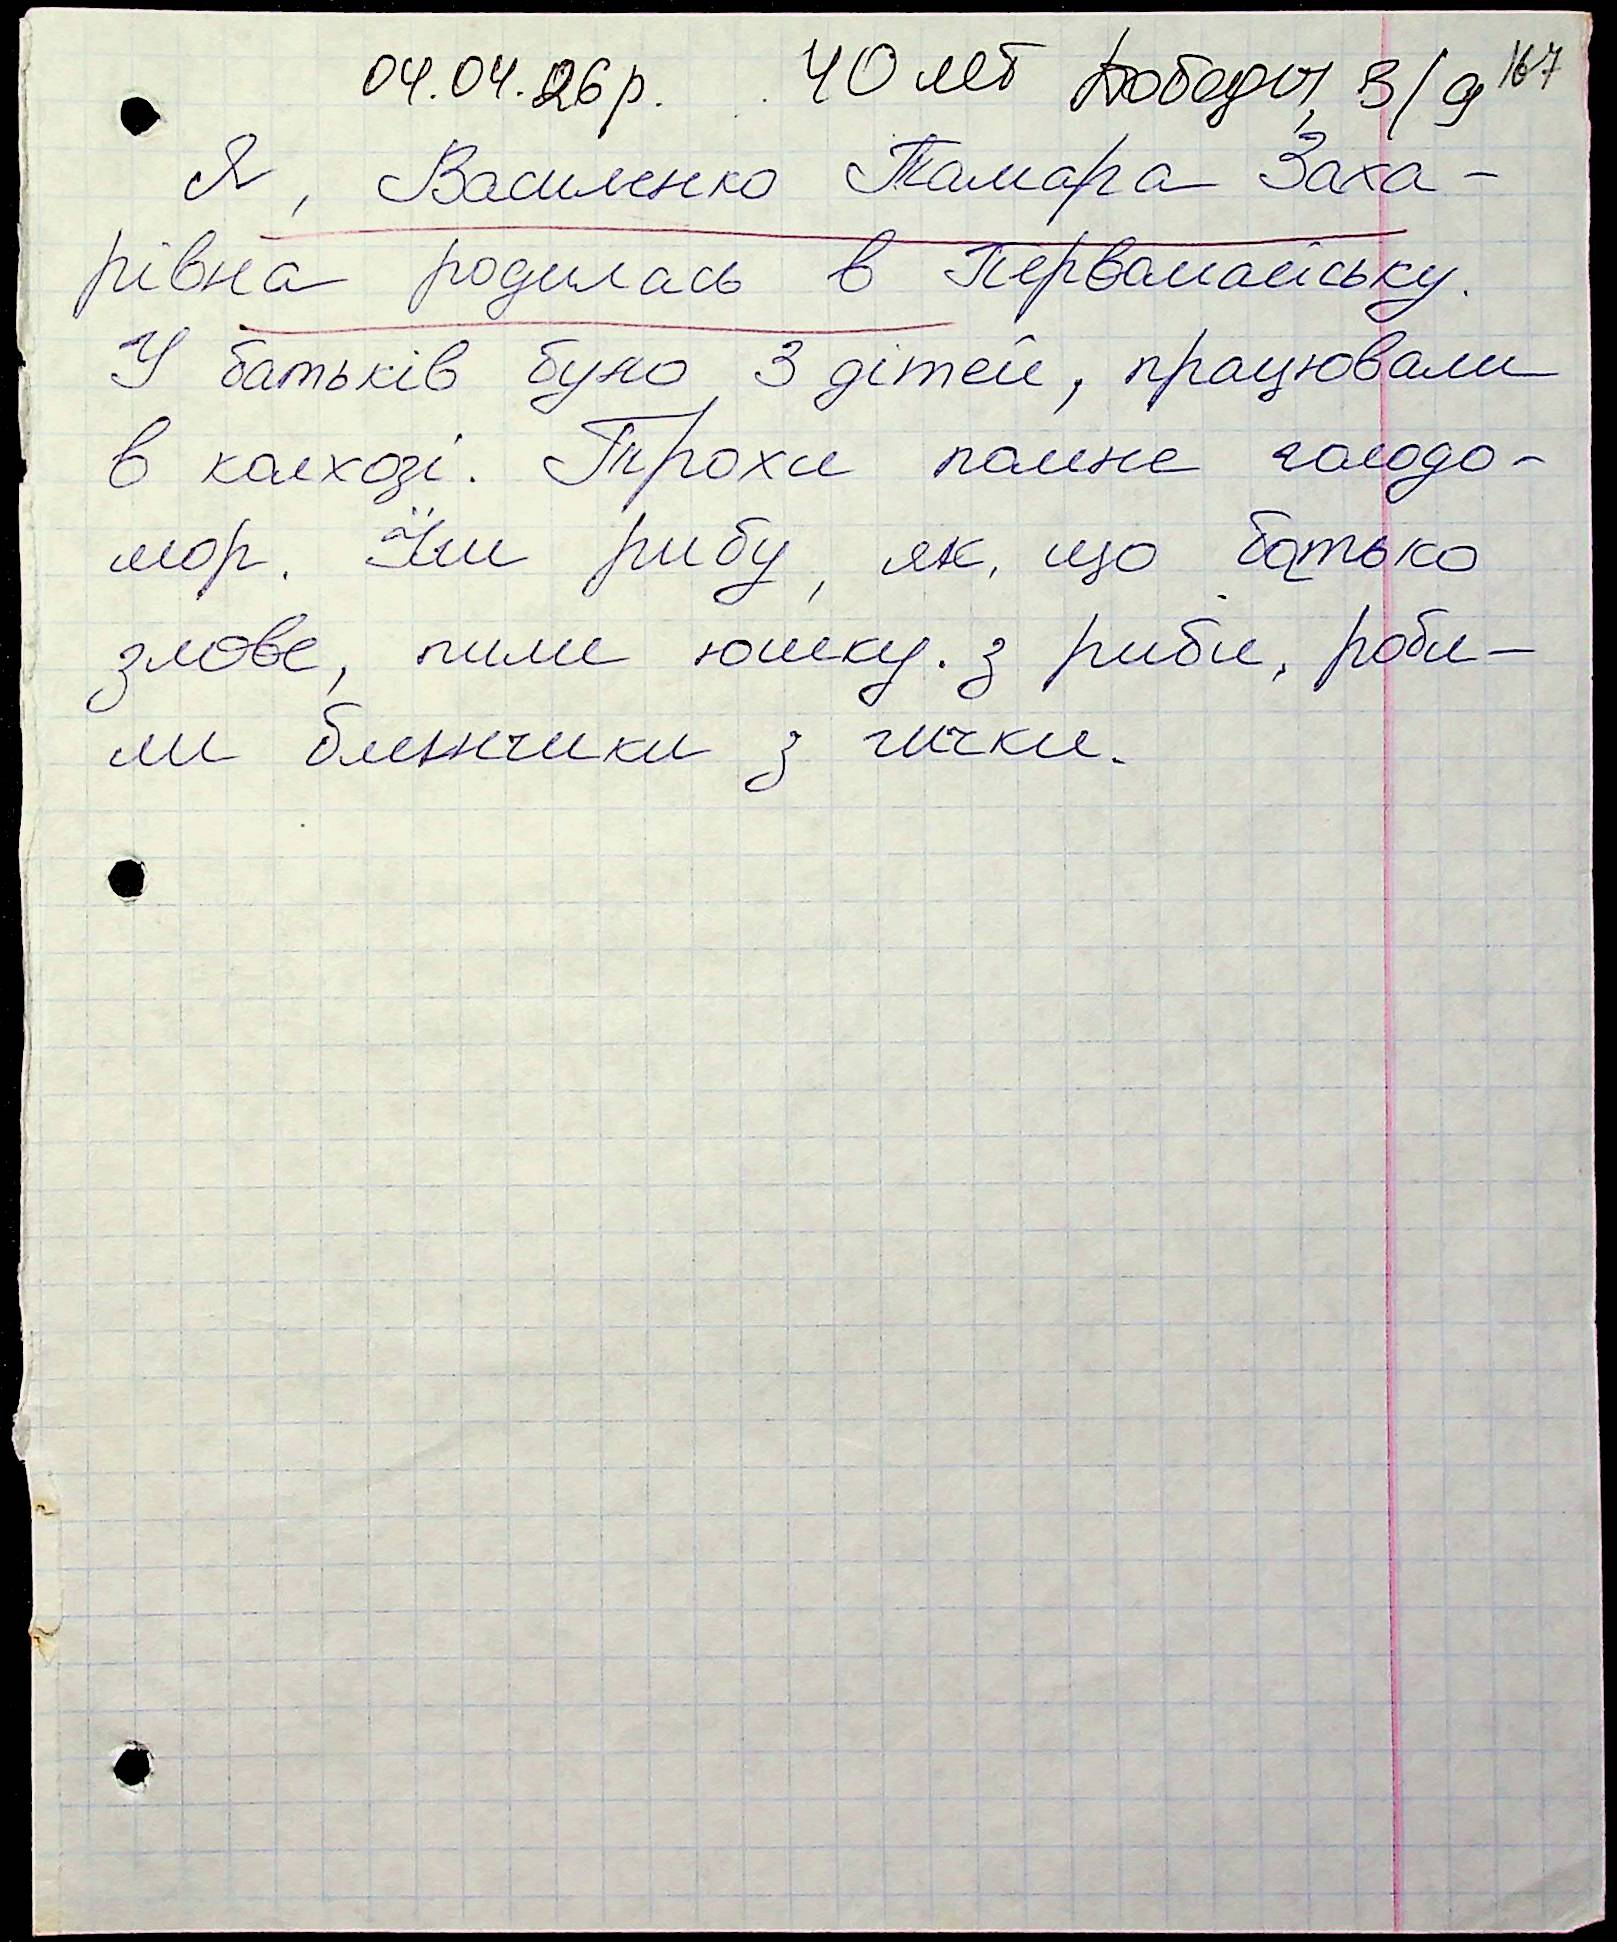 04.04.26р. 40 лет Победы, 3/9 167
Я, Василенко Тамара Заха-
рівна родилась в Первомайську.
У батьків було 3 дітей, працювали
в колхозі. Трохи помне голодо-
мор. Їли рибу, як, що батько
злове, пили юшку з риби, роби-
ли бленчики з гички.